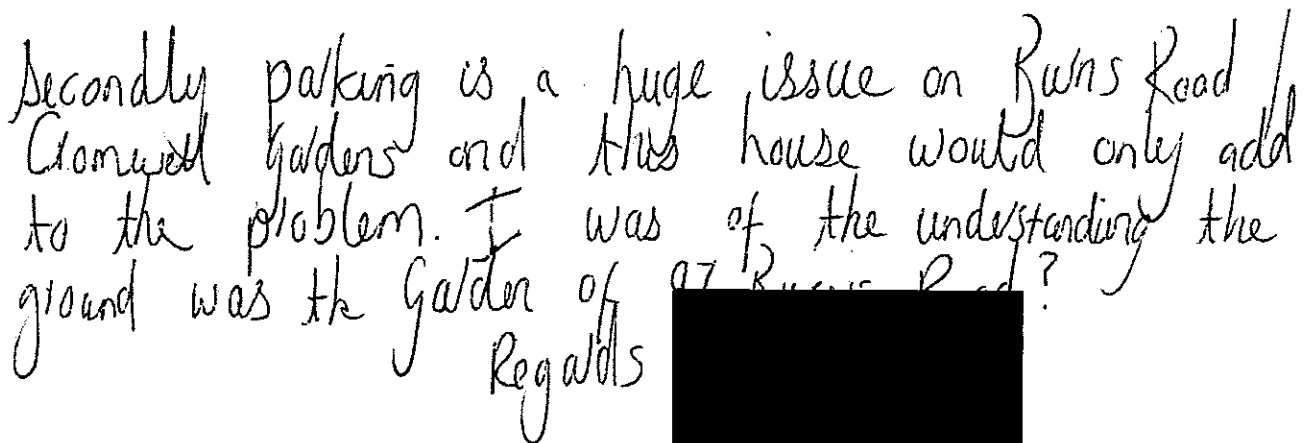 Secondly parking is a huge issue on Burns Road /
Cromwell Gardens and this house would only add
to the problem. I was of the understanding the
ground was the Garden of 97 Burns Road?
Regards